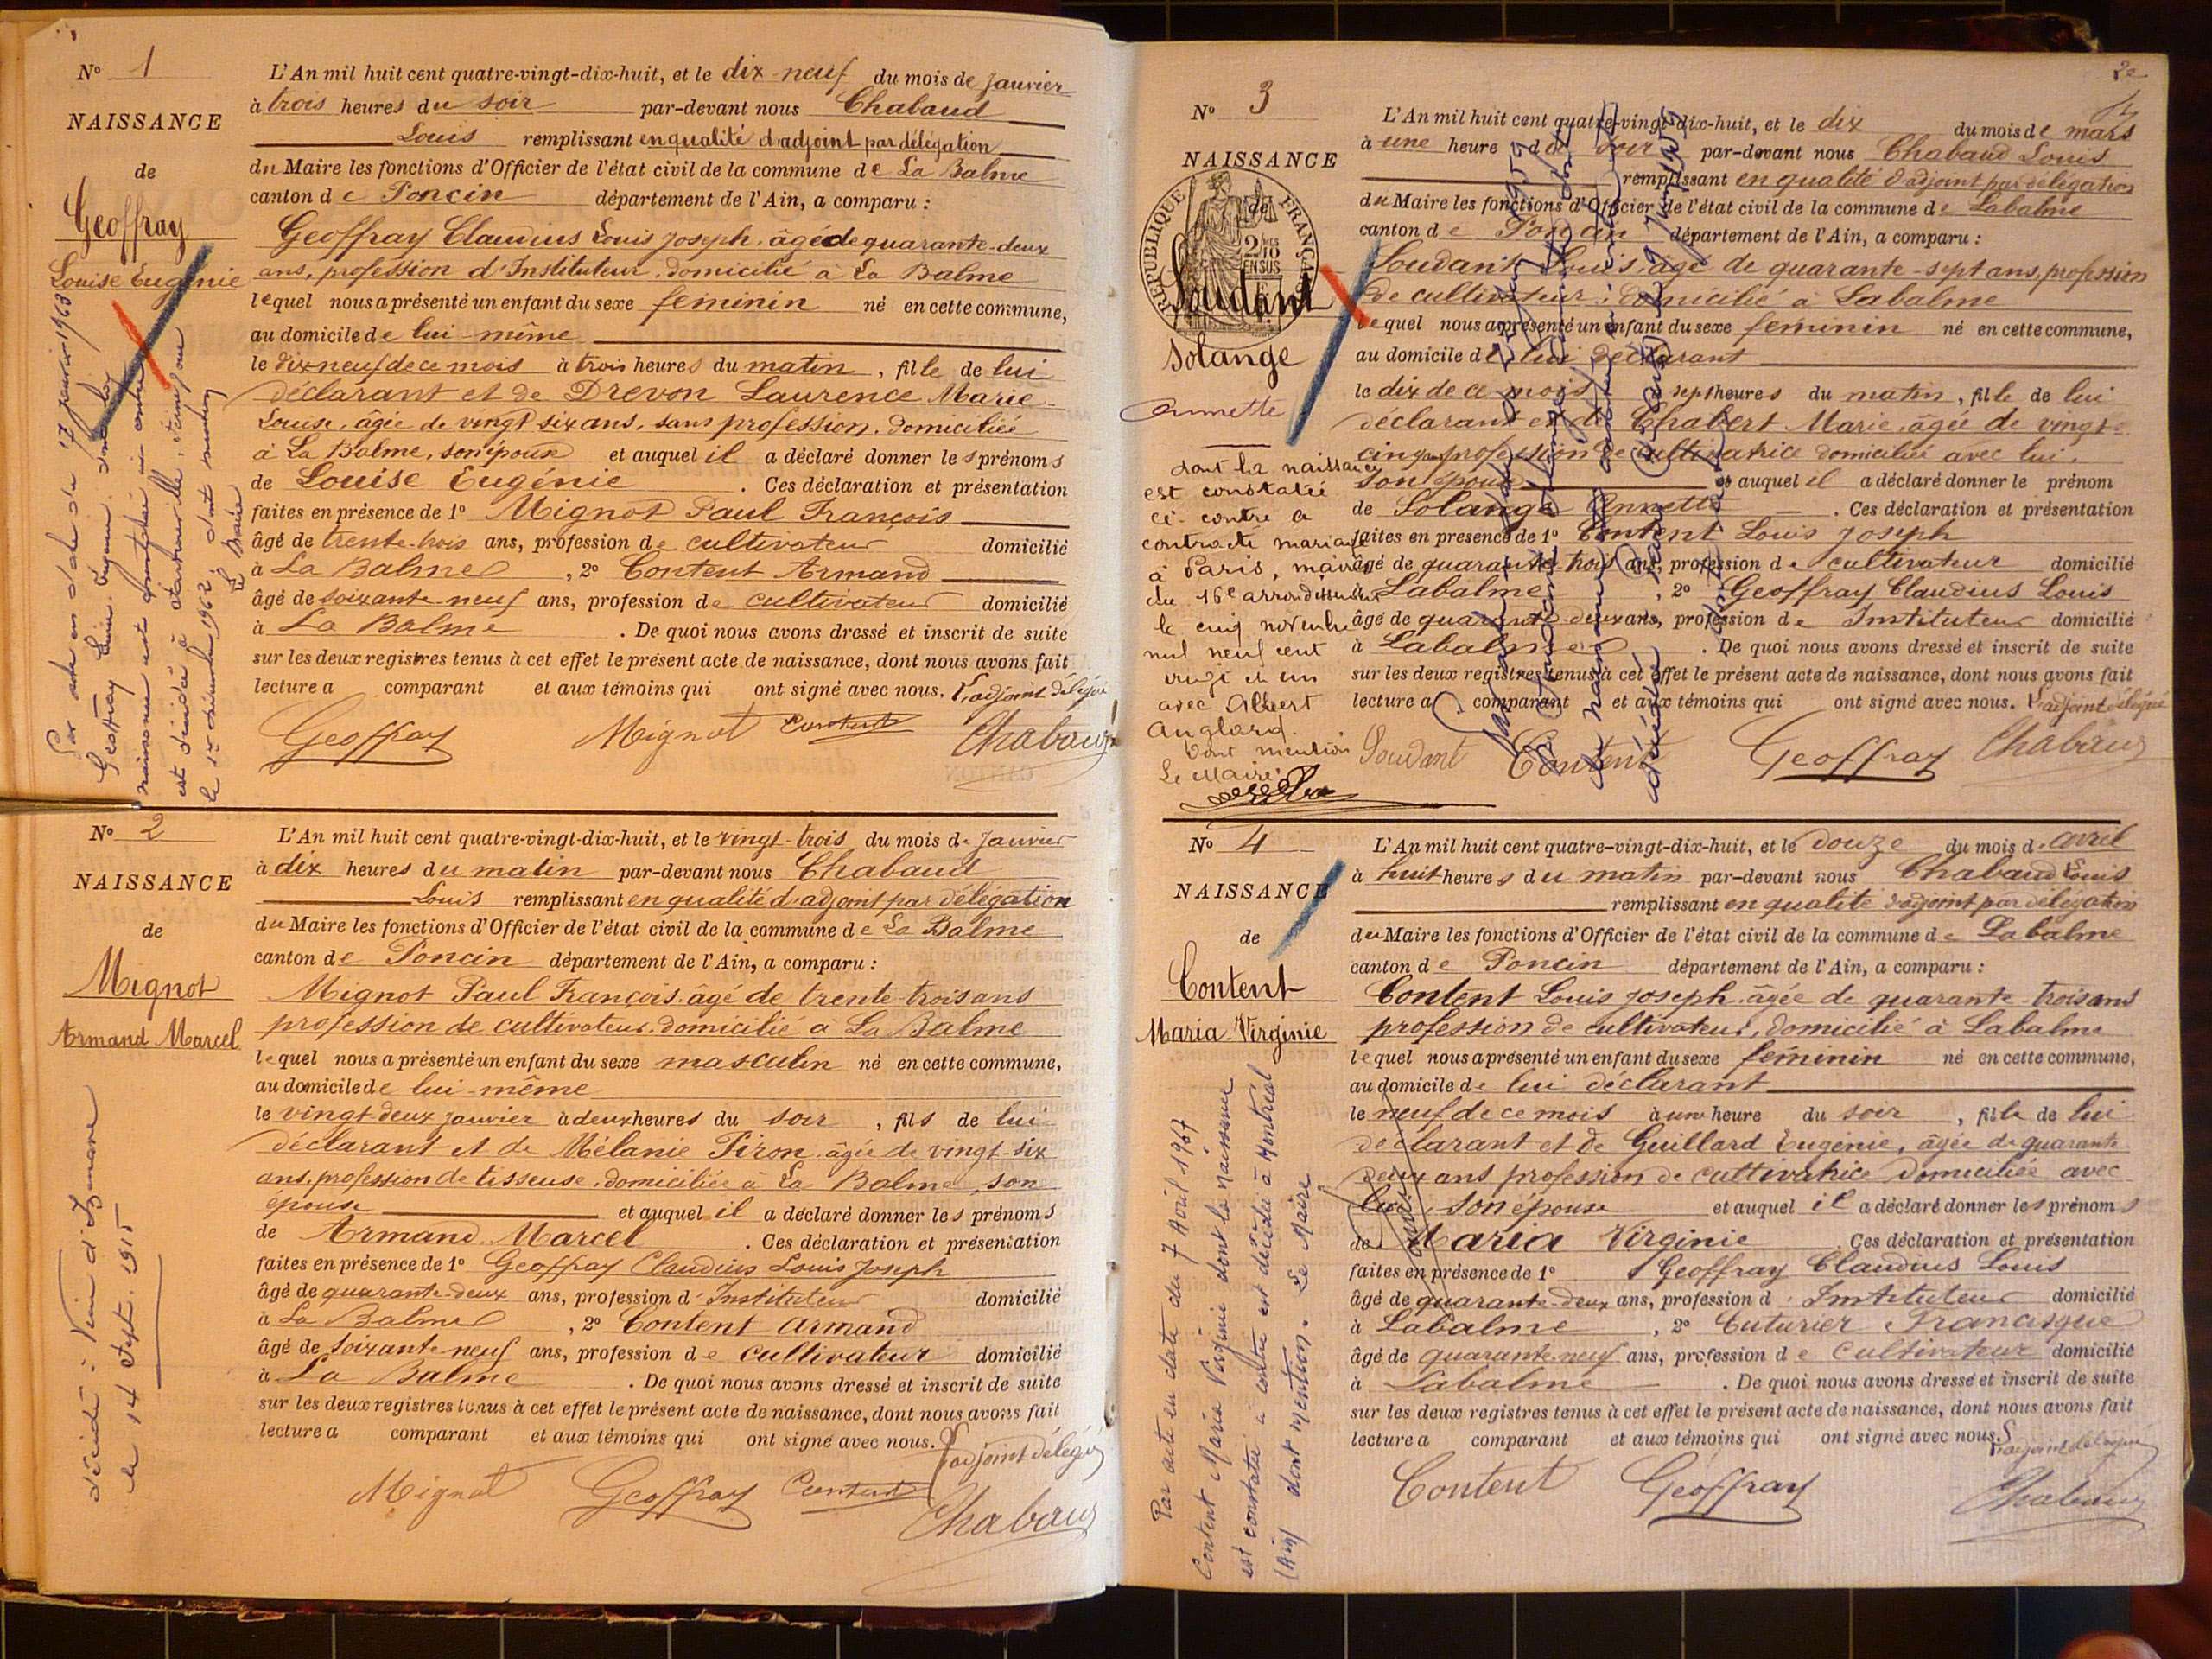 N° 1
NAISSANCE
de
Geoffray
Louise Eugénie
Par acte en date du 17 janvier 1963
Geoffray Louise Eugénie dont la
naissance est constatée ci-contre
est décédée à
le 12 décembre 1962, dont mention
Le Maire
L'An mil huit cent quatre-vingt-dix-huit, et le dix-neuf du mois de Janvier
à trois heures du soir par-devant nous Chabaud
Louis remplissant en qualité d'adjoint par délégation
du Maire les fonctions d'Officier de l'état civil de la commune de La Balme
canton de Poncin département de l'Ain, a comparu :
Geoffray Claudius Louis Joseph, âgé de quarante-deux
ans, profession d'Instituteur, domicilié à La Balme
lequel nous a présenté un enfant du sexe féminin né en cette commune,
au domicile de lui-même
le dix neuf de ce mois à trois heures du matin, fille de lui
déclarant et de Drevon Laurence Marie-
Louise, âgée de vingt six ans, sans profession, domiciliée
à La Balme, son épouse et auquel il a déclaré donner les prénoms
de Louise Eugénie. Ces déclaration et présentation
faites en présence de 1° Mignot Paul François
âgé de trente-trois ans, profession de cultivateur domicilié
à La Balme, 2° Content Armand
âgé de soixante-neuf ans, profession de cultivateur domicilié
à La Balme. De quoi nous avons dressé et inscrit de suite
sur les deux registres tenus à cet effet le présent acte de naissance, dont nous avons fait
lecture a comparant et aux témoins qui ont signé avec nous. L'adjoint délégué
Geoffray Mignot Content Chabaud
N° 2
NAISSANCE
de
Mignot
Armand Marcel
décédé à
le 14 Sept. 1915
L'An mil huit cent quatre-vingt-dix-huit, et le vingt-trois du mois de Janvier
à dix heures du matin par-devant nous Chabaud
Louis remplissant en qualité d'adjoint par délégation
du Maire les fonctions d'Officier de l'état civil de la commune de La Balme
canton de Poncin département de l'Ain, a comparu :
Mignot Paul François, âgé de trente-trois ans
profession de cultivateur, domicilié à La Balme
lequel nous a présenté un enfant du sexe masculin né en cette commune,
au domicile de lui-même
le vingt-deux janvier à deux heures du soir, fils de lui
déclarant et de Mélanie Piron, âgée de vingt-six
ans, profession de tisseuse, domiciliée à La Balme, son
épouse et auquel il a déclaré donner les prénoms
de Armand Marcel. Ces déclaration et présentation
faites en présence de 1° Geoffray Claudius Louis Joseph
âgé de quarante-deux ans, profession d'Instituteur domicilié
à La Balme, 2° Content Armand
âgé de soixante-neuf ans, profession de cultivateur domicilié
à La Balme. De quoi nous avons dressé et inscrit de suite
sur les deux registres tenus à cet effet le présent acte de naissance, dont nous avons fait
lecture a comparant et aux témoins qui ont signé avec nous. L'adjoint délégué
Mignot Geoffray Content Chabaud
N° 3
NAISSANCE
de
RÉPUBLIQUE FRANÇAISE
Soudant
Solange
Annette
dont la naissance
est constatée
ci-contre a
contracté mariage
à Paris, mairie
du 16e arrondissement
le cinq novembre
mil neuf cent
vingt et un
avec Albert
Anglard.
Dont mention
Le Maire:
L'An mil huit cent quatre-vingt-dix-huit, et le dix du mois de mars
à une heure du soir par-devant nous Chabaud Louis
remplissant en qualité d'adjoint par délégation
du Maire les fonctions d'Officier de l'état civil de la commune de Labalme
canton de Poncin département de l'Ain, a comparu :
Soudant Louis, âgé de quarante-sept ans, profession
de cultivateur, domicilié à Labalme
lequel nous a présenté un enfant du sexe féminin né en cette commune,
au domicile de lui déclarant
le dix de ce mois à sept heures du matin, fille de lui
déclarant et de Chabert Marie, âgée de vingt-
cinq ans profession de cultivatrice domiciliée avec lui,
son épouse et auquel il a déclaré donner le prénom
de Solange Annette. Ces déclaration et présentation
faites en présence de 1° Content Louis Joseph
âgé de quarante-trois ans, profession de cultivateur domicilié
à Labalme, 2° Geoffray Claudius Louis
âgé de quarante-deux ans, profession de Instituteur domicilié
à Labalme. De quoi nous avons dressé et inscrit de suite
sur les deux registres tenus à cet effet le présent acte de naissance, dont nous avons fait
lecture a comparant et aux témoins qui ont signé avec nous. L'adjoint délégué
Soudant Content Geoffray Chabaud
N° 4
NAISSANCE
de
Content
Maria-Virginie
Par acte en date du 7 Avril 1967
Content Maria Virginie dont la naissance
est constatée ci-contre est décédée à Montréal
(Ain) dont mention. Le Maire
L'An mil huit cent quatre-vingt-dix-huit, et le douze du mois d'avril
à huit heures du matin par-devant nous Chabaud Louis
remplissant en qualité d'adjoint par délégation
du Maire les fonctions d'Officier de l'état civil de la commune de Labalme
canton de Poncin département de l'Ain, a comparu :
Content Louis Joseph, âgée de quarante-trois ans
profession de cultivateur, domicilié à Labalme
lequel nous a présenté un enfant du sexe féminin né en cette commune,
au domicile de lui déclarant
le neuf de ce mois à une heure du soir, fille de lui
déclarant et de Guillard Eugénie, âgée de quarante
deux ans profession de cultivatrice domiciliée avec
lui, son épouse et auquel il a déclaré donner les prénoms
de Maria Virginie. Ces déclaration et présentation
faites en présence de 1° Geoffray Claudius Louis
âgé de quarante-deux ans, profession d'Instituteur domicilié
à Labalme, 2° Cuturier Francisque
âgé de quarante-neuf ans, profession de cultivateur domicilié
à Labalme. De quoi nous avons dressé et inscrit de suite
sur les deux registres tenus à cet effet le présent acte de naissance, dont nous avons fait
lecture a comparant et aux témoins qui ont signé avec nous. L'adjoint délégué
Content Geoffray Chabaud